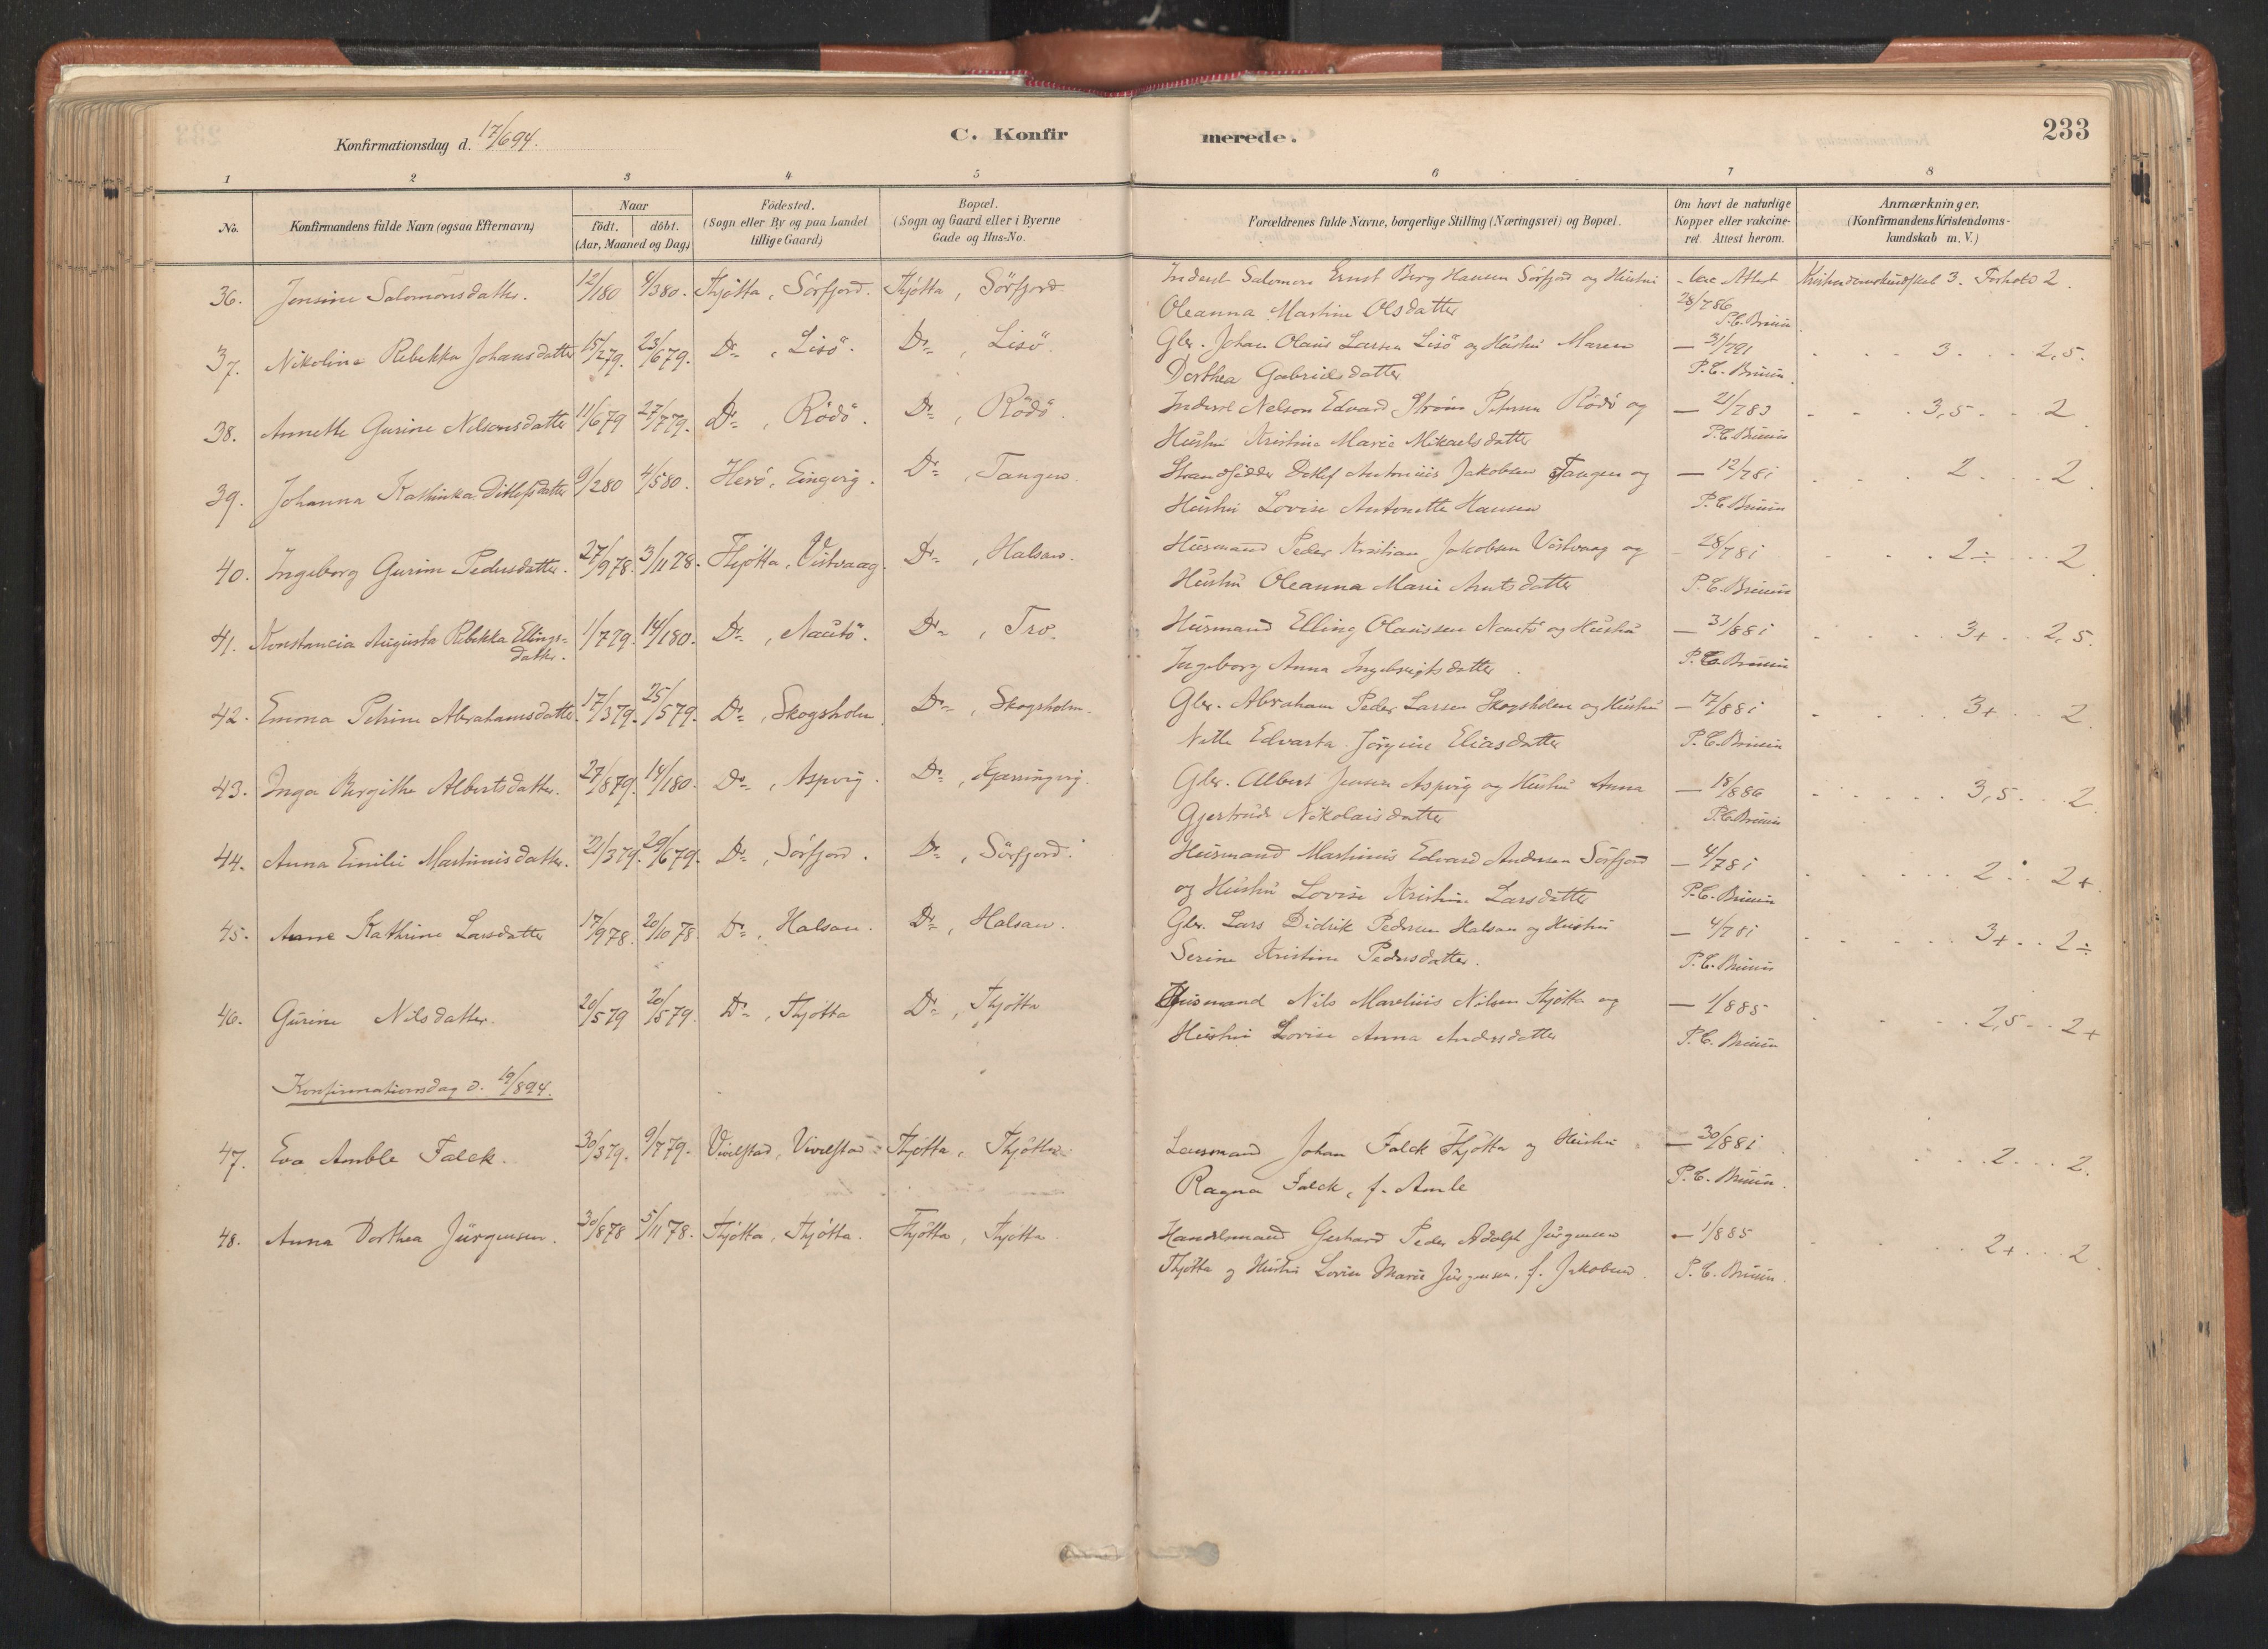 Konfirmationsdag d. 17/6 94.
C. Konfirmerede.
233
1 2 3 4 5 6 7 8
No.
Konfirmandens fulde Navn (ogsaa Efternavn)
Naar
födt. döbt.
(Aar, Maaned og Dag)
Födested.
(Sogn eller By og paa Landet
tillige Gaard)
Bopæl.
(Sogn og Gaard eller i Byerne
Gade og Hus-No.
Forældrenes fulde Navne, borgerlige Stilling (Næringsvei) og Bopæl.
Om havt de naturlige
Kopper eller vakcine-
ret. Attest herom.
Anmærkninger,
(Konfirmandens Kristendoms-
kundskab m. V.)
36. Jensine Salomonsdatter. 12/1 80 4/3 80. Thjötta, Sörfjord. Thjötta, Sörfjord Inderst Salomon Ernst Berg Hansen Sörfjord og Hustru - Vac Attest Kristendomskundskab 3. Forhold 2.
Oleanna Martine Olsdatter 28/7 86 P.C. Bruun
37. Nikoline Rebekka Johansdatter 15/2 79. 23/6 79. Do, Lisö. Do, Lisö. Gbr. Johan Olaus Larsen Lisö og Hustru Maren — 31/7 91 3. 2,5.
Dorthea Gabrielsdatter P.C. Bruun.
38. Annette Gurine Nelsonsdatter 11/6 79 27/7 79. Do, Rödö. Do, Rödö. Inderst Nelson Edvard Ström Petersen Rödö og — 21/7 83 3,5 2
Hustru Kristine Marie Mikaelsdatter P.C. Bruun
39. Johanna Kathinka Ditlefsdatter 9/2 80 4/5 80. Herö, Eingvig. Do, Tangen. Strandsidder Detlef Antonius Jakobsen Tangen og — 12/7 81 2 2
Hustru Lovise Antonette Hansen P.C. Bruun
40. Ingeborg Gurine Pedersdatter. 27/9 78. 3/11 78. Thjötta, Vistvaag. Do, Halsan. Husmand Peder Kristian Jakobsen Vistvaag og 28/7 81 2÷ 2
Hustru Oleanna Marie Arntsdatter P.C. Bruun
41. Konstancia Augusta Rebekka Ellings- 1/7 79. 14/1 80. Do, Nautö. Do, Tro. Husmand Elling Olaussen Nautö og Hustru — 31/8 81 3+ 2,5.
datter. Ingeborg Anna Ingebrigtsdatter. P.C. Bruun
42. Emma Petrine Abrahamsdatter. 17/3 79. 25/5 79. Do, Skogsholm. Do, Skogsholm. Gbr. Abraham Peder Larsen Skogsholm og Hustru — 17/8 81 3+ 2.
Nille Edvarta Jörgine Eliasdatter P.C. Bruun
43. Inga Birgithe Albertsdatter. 27/8 79. 14/1 80. Do, Aspvig. Do, Kjærringvig. Gbr. Albert Jensen Aspvig og Hustru Anna — 18/8 86 3,5. 2
Gjertrud Nikolaisdatter P.C. Bruun
44. Anna Emilie Martinusdatter. 21/3 79. 29/6 79. Do, Sörfjord. Do, Sörfjord. Husmand Martinus Edvard Andersen Sörfjord — 4/7 81 2 2+
og Hustru Lovise Kristine Larsdatter P.C. Bruun
45. Anne Kathrine Larsdatter 17/9 78. 20/10 78 Do, Halsan. Do, Halsan. Gbr. Lars Didrik Pedersen Halsan og Hustru — 4/7 81 3+ 2÷
Serine Kristine Pedersdatter. P.C. Bruun
46. Gurine Nilsdatter. 20/5 79 20/5 79. Do, Thjötta Do, Thjötta Husmand Nils Marelius Nilsen Thjötta og — 1/8 85 2,5 2+
Hustru Lovise Anna Andersdatter P.C. Bruun
Konfirmationsdag d. 19/8 94.
47. Eva Amble Falck. 30/3 79. 9/7 79. Vivelstad, Vivelstad Thjötta, Thjötta. Lensmand Johan Falck Thjötta og Hustru — 30/8 81 2 2.
Ragna Falck, f. Amle P.C. Bruun.
48. Anna Dorthea Jürgensen. 30/8 78 5/11 78. Thjötta, Thjötta. Thjötta, Thjötta Handelsmand Gerhard Peder Adolph Jürgensen — 1/8 85 2+ 2
Thjötta og Hustru Lovise Marie Jürgensen, f. Jakobsen. P.C. Bruun.